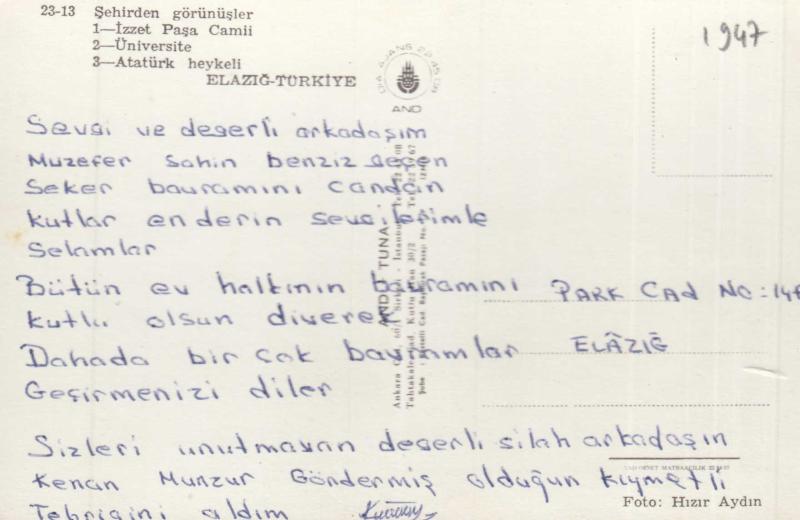 23-13 Şehirden görünüşler
1—İzzet Paşa Camii
2—Üniversite
3—Atatürk heykeli
ELAZIĞ-TÜRKİYE
1947
AND
Sevgi ve degerli arkadaşım
Muzefer Sahin benziz geçen
Seker bayramını candan
kutlar enderin sevgilerimle
Selamlar
Bütün ev halkının bayramını
kutlu olsun diyerek
Dahada bir çok bayramlar
Geçirmenizi diler
Sizleri unutmayan degerli silah arkadaşın
Kenan Munzur Göndermiş olduğun kıymetli
Tebrigini aldım
PARK CAD NO: 14
ELÂZIĞ
AND TUNA
Foto: Hızır Aydın